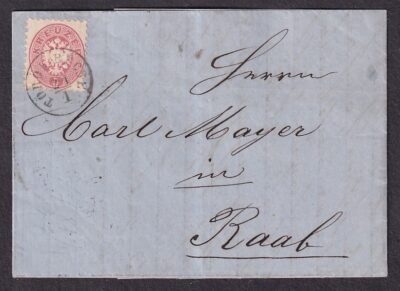 KREUZER
Herrn
Carl Mayer
in
Raab